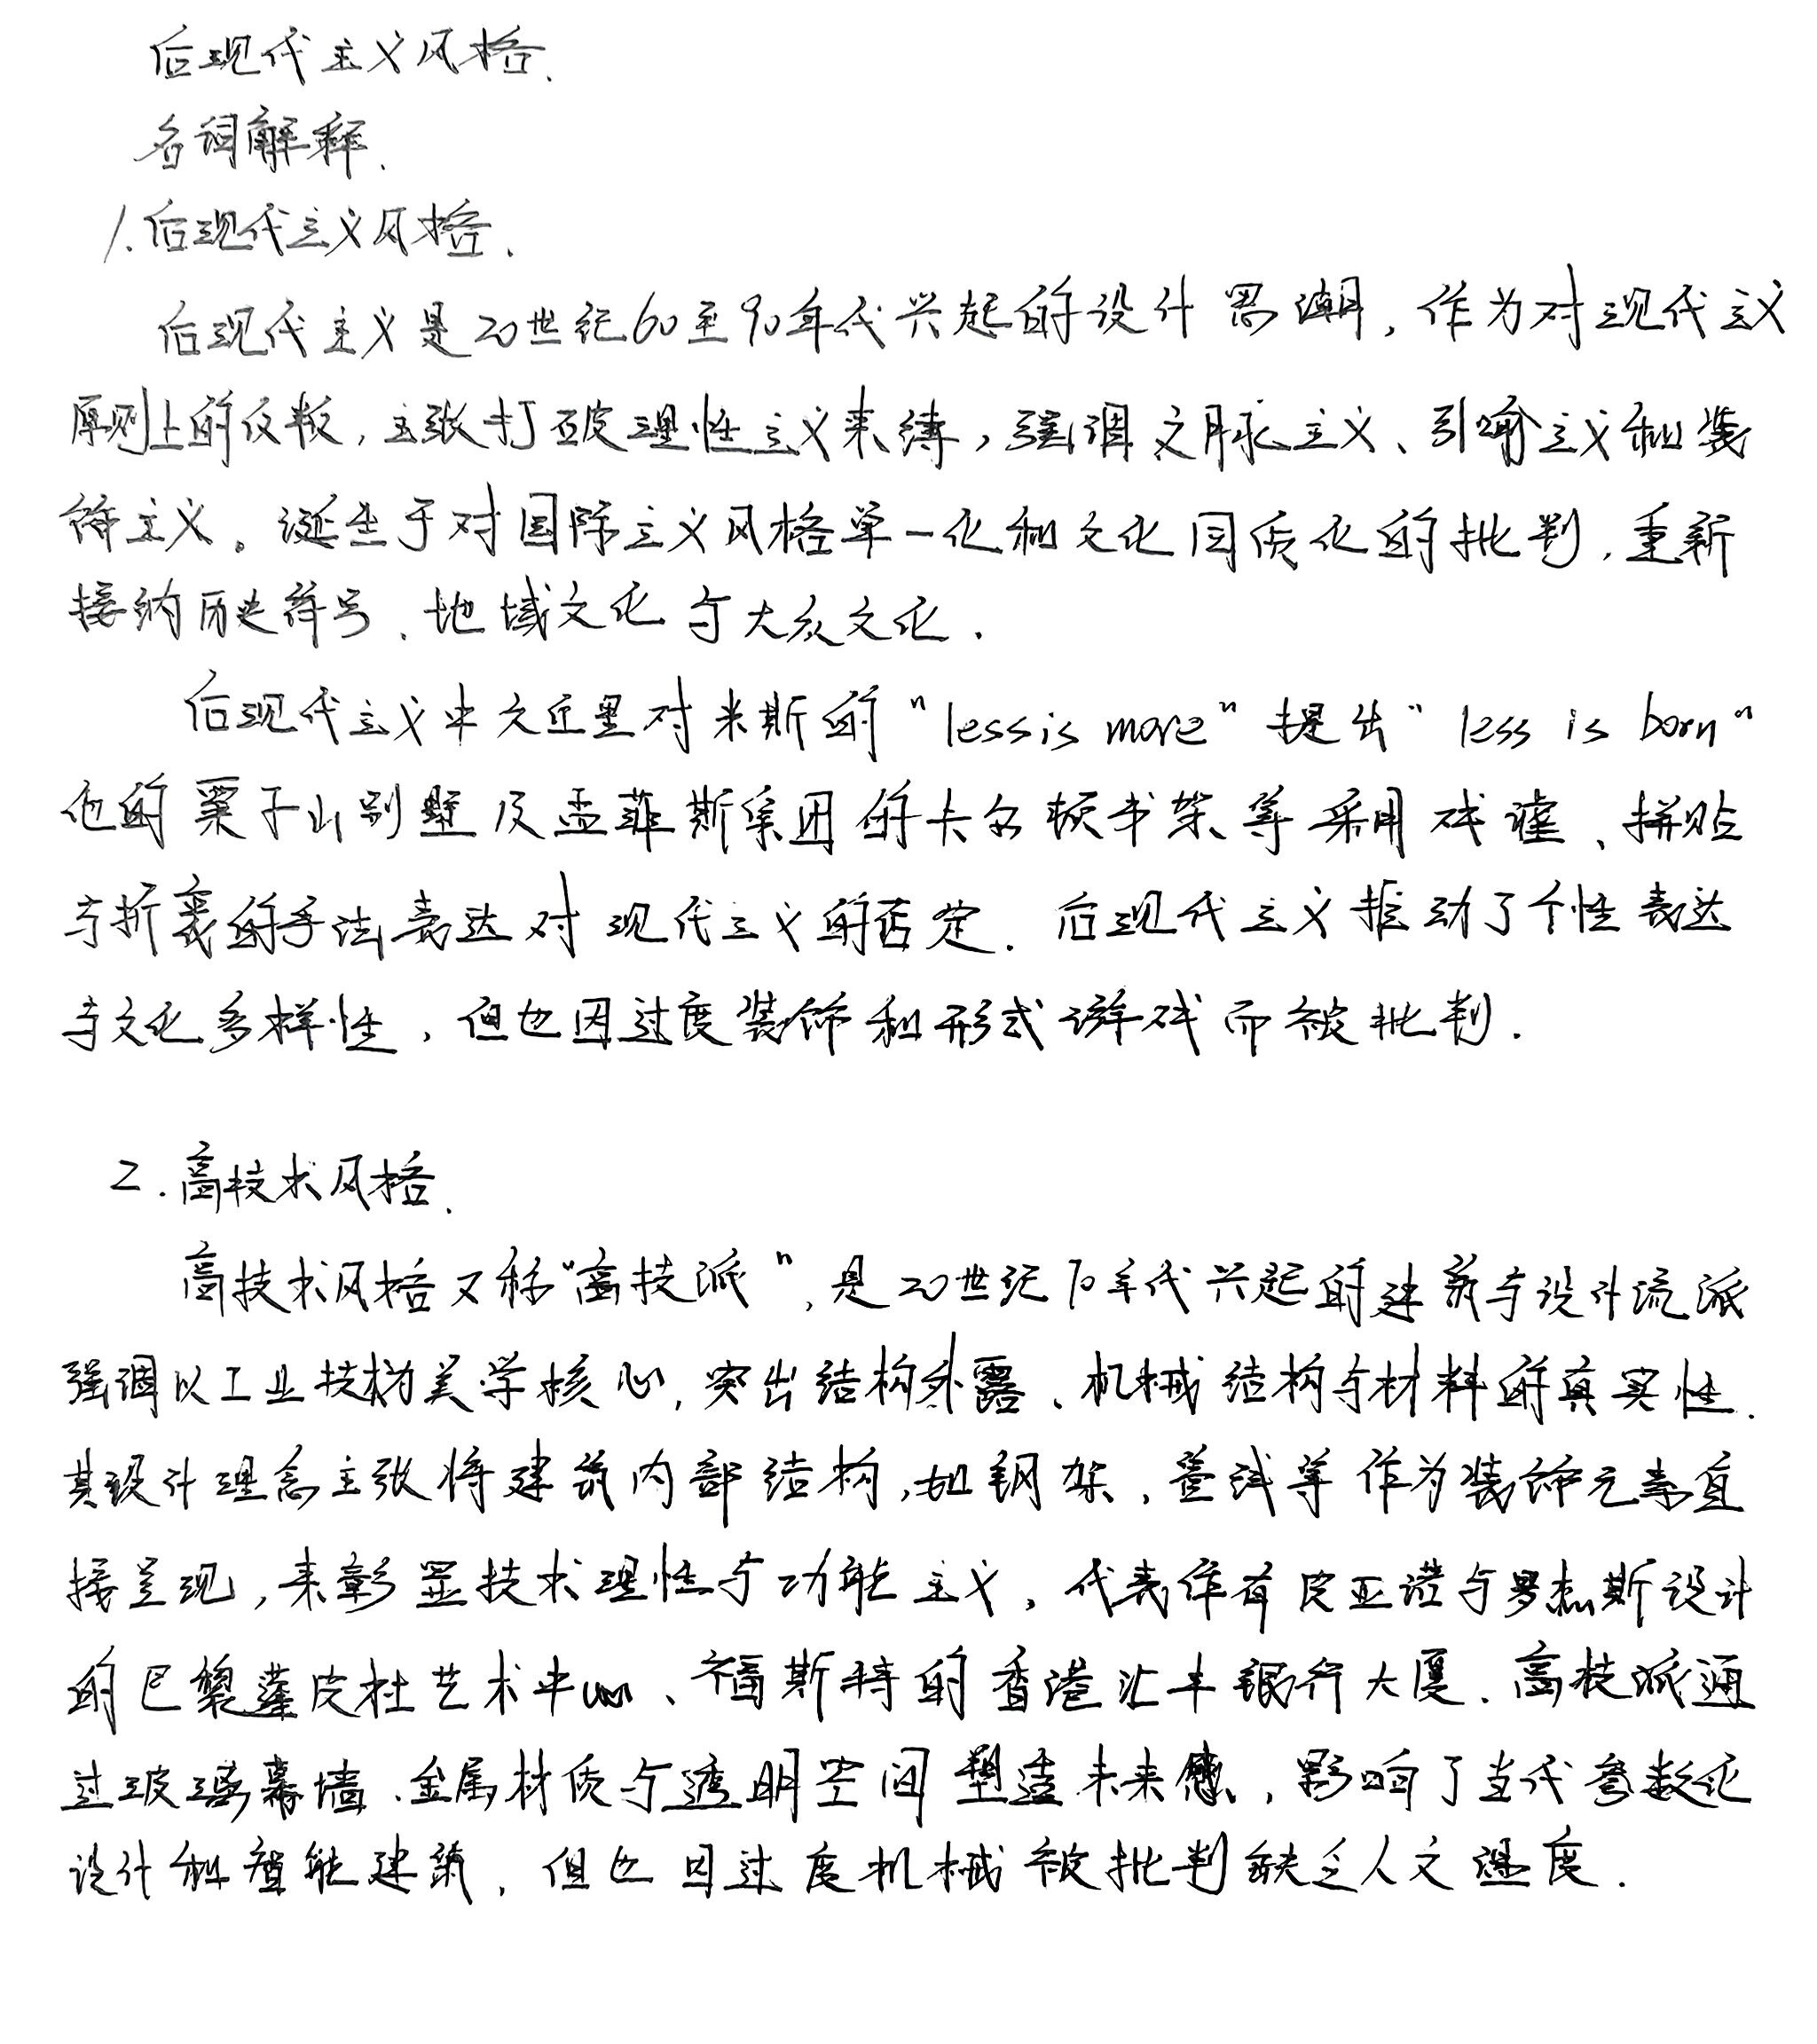 后现代主义风格.
名词解释.
1.后现代主义风格.
后现代主义是20世纪60至90年代兴起的设计思潮，作为对现代主义
原则上的反叛，主张打破理性主义束缚，强调文脉主义、引喻主义和装
饰主义。诞生于对国际主义风格单一化和文化同质化的批判，重新
接纳历史符号、地域文化与大众文化.
后现代主义中文丘里对米斯的"less is more"提出"less is born"
他的栗子山别墅及孟菲斯集团的卡尔顿书架等采用戏谑、拼贴
与折衷的手法表达对现代主义的否定. 后现代主义推动了个性表达
与文化多样性，但也因过度装饰和形式游戏而被批判.
2.高技术风格.
高技术风格又称"高技派"，是20世纪70年代兴起的建筑与设计流派
强调以工业技术为美学核心，突出结构外露、机械结构与材料的真实性.
其设计理念主张将建筑内部结构，如钢架，管线等作为装饰元素直
接呈现，来彰显技术理性与功能主义，代表作有皮亚诺与罗杰斯设计
的巴黎蓬皮杜艺术中心、福斯特的香港汇丰银行大厦. 高技派通
过玻璃幕墙、金属材质与透明空间塑造未来感，影响了当代参数化
设计和智能建筑，但也因过度机械被批判缺乏人文温度.